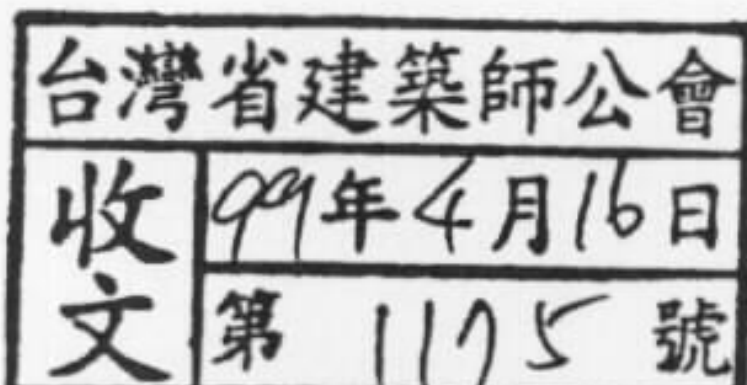 台灣省建築師公會
收文
99年4月16日
第 1175 號